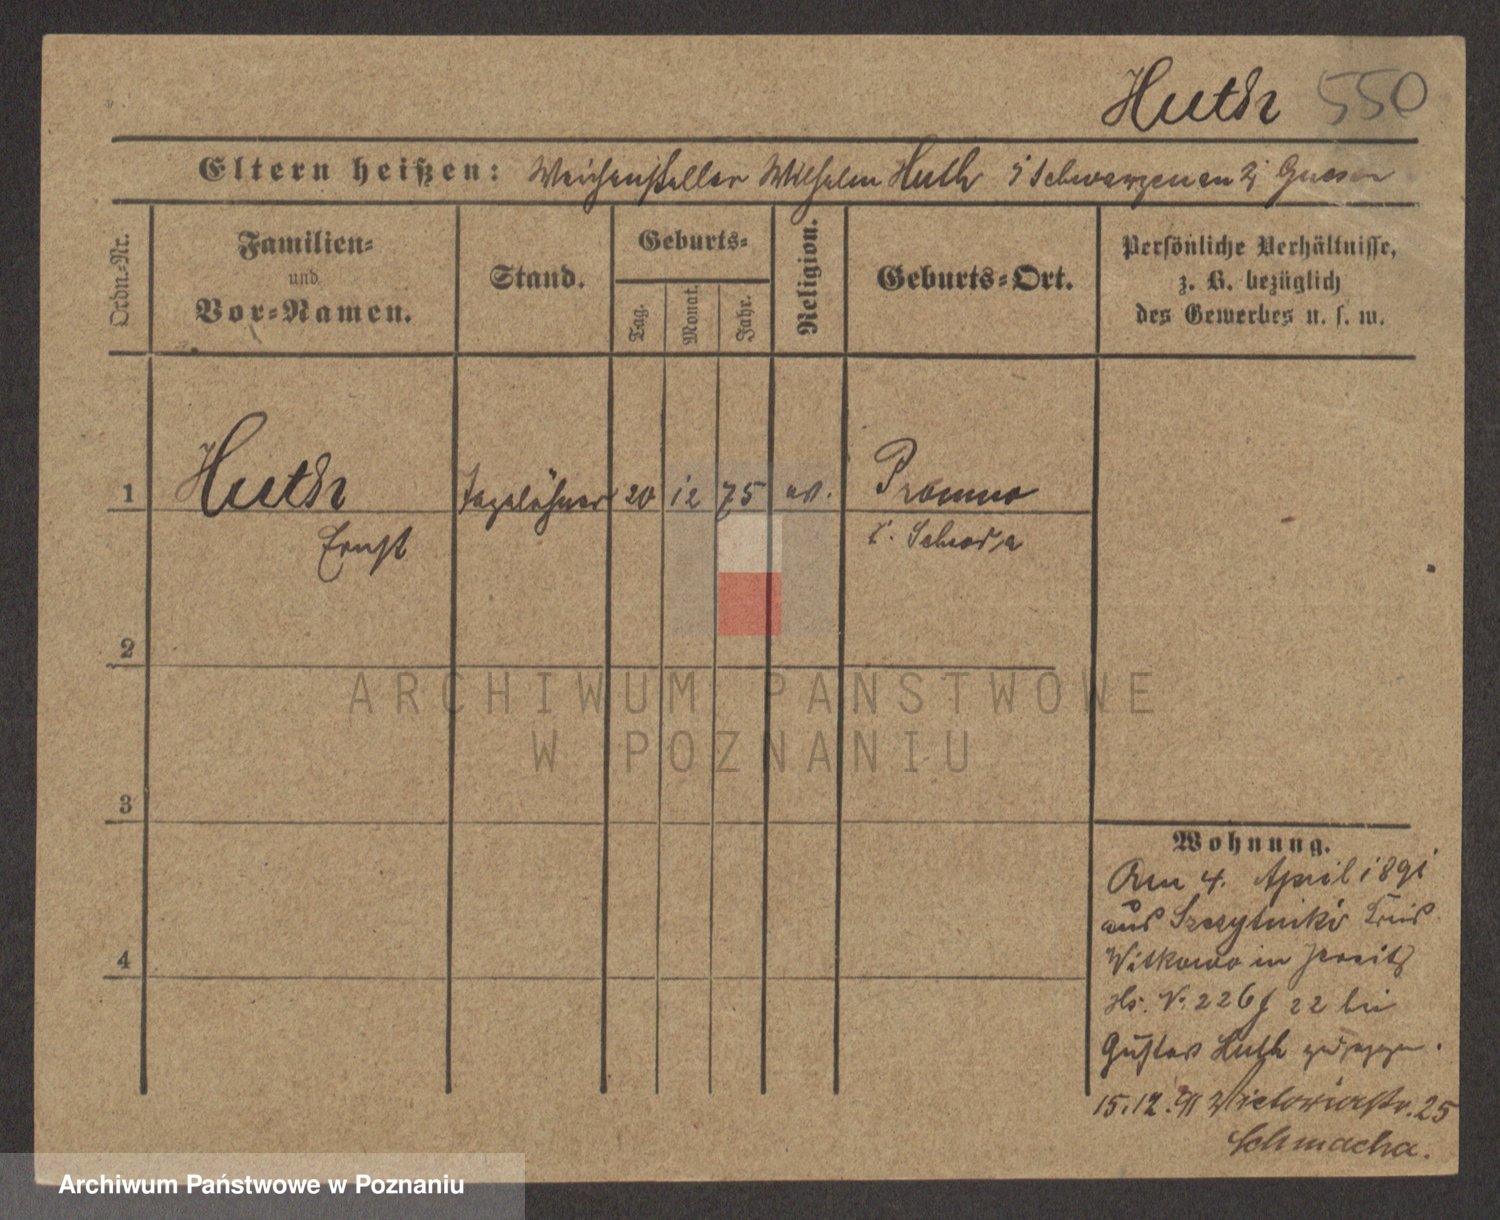 Huth 550
Eltern heißen: Weichensteller Wilhelm Huth i Schwarzenau Gnesen
Ordn.-Nr.
Familien-
und
Vor-Namen.
Stand.
Geburts-
Tag.
Monat.
Jahr.
Religion.
Geburts-Ort.
Persönliche Verhältnisse,
z. B. bezüglich
des Gewerbes u. s. w.
1 Huth Tagelöhner 20 12 75 ev. Promno
Ernst K. Schroda
2
3
4
Wohnung.
Am 4. April 1891
aus Szczytniki Kreis
Witkowo in Jersitz
Hs. N. 226f 22 bei
Gustav Huth zugezogen.
15.12.91 Victoriastr. 25
Schmacha.
ARCHIWUM PAŃSTWOWE
W POZNANIU
Archiwum Państwowe w Poznaniu